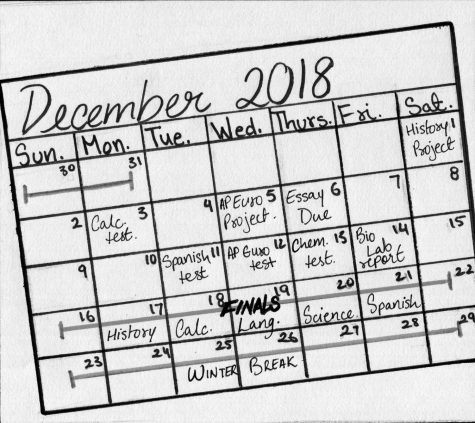 December 2018
Sun. Mon. Tue. Wed. Thurs. Fri. Sat.
30 31 History 1
Project
2 Calc. 3 4 AP Euro 5 Essay 6 7 8
test. Project. Due
9 10 Spanish 11 AP Euro 12 Chem. 13 Bio 14 15
test test test. Lab
report
16 17 18 19 20 21 22
FINALS
History Calc. Lang. Science. Spanish
23 24 25 26 27 28 29
WINTER BREAK